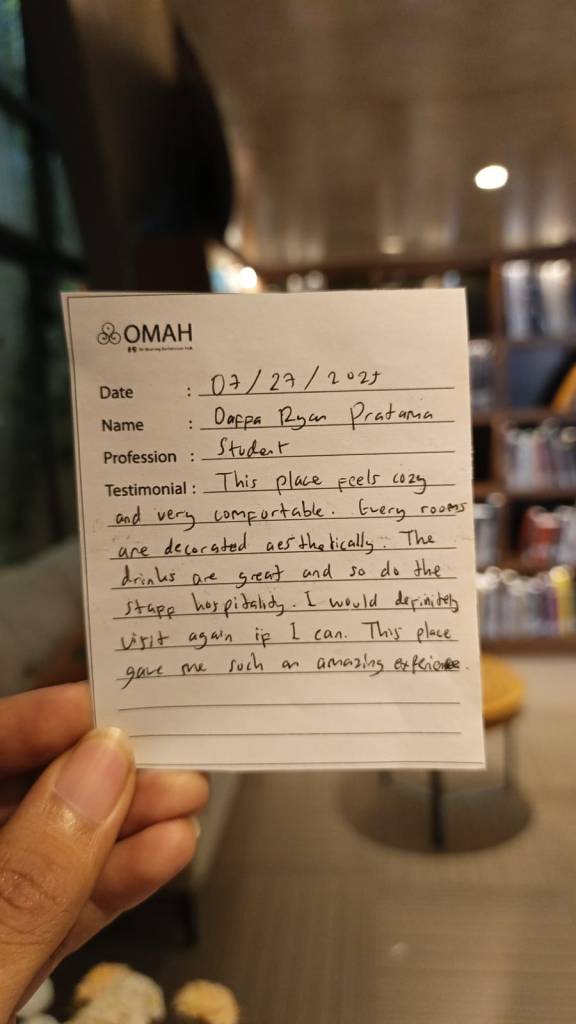 OMAH
Date : 07/27/2025
Name : Daffa Ryan Pratama
Profession : Student
Testimonial : This place feels cozy
and very comfortable. Every rooms
are decorated aesthetically. The
drinks are great and so do the
staff hospitality. I would definitely
visit again if I can. This place
gave me such an amazing experience.